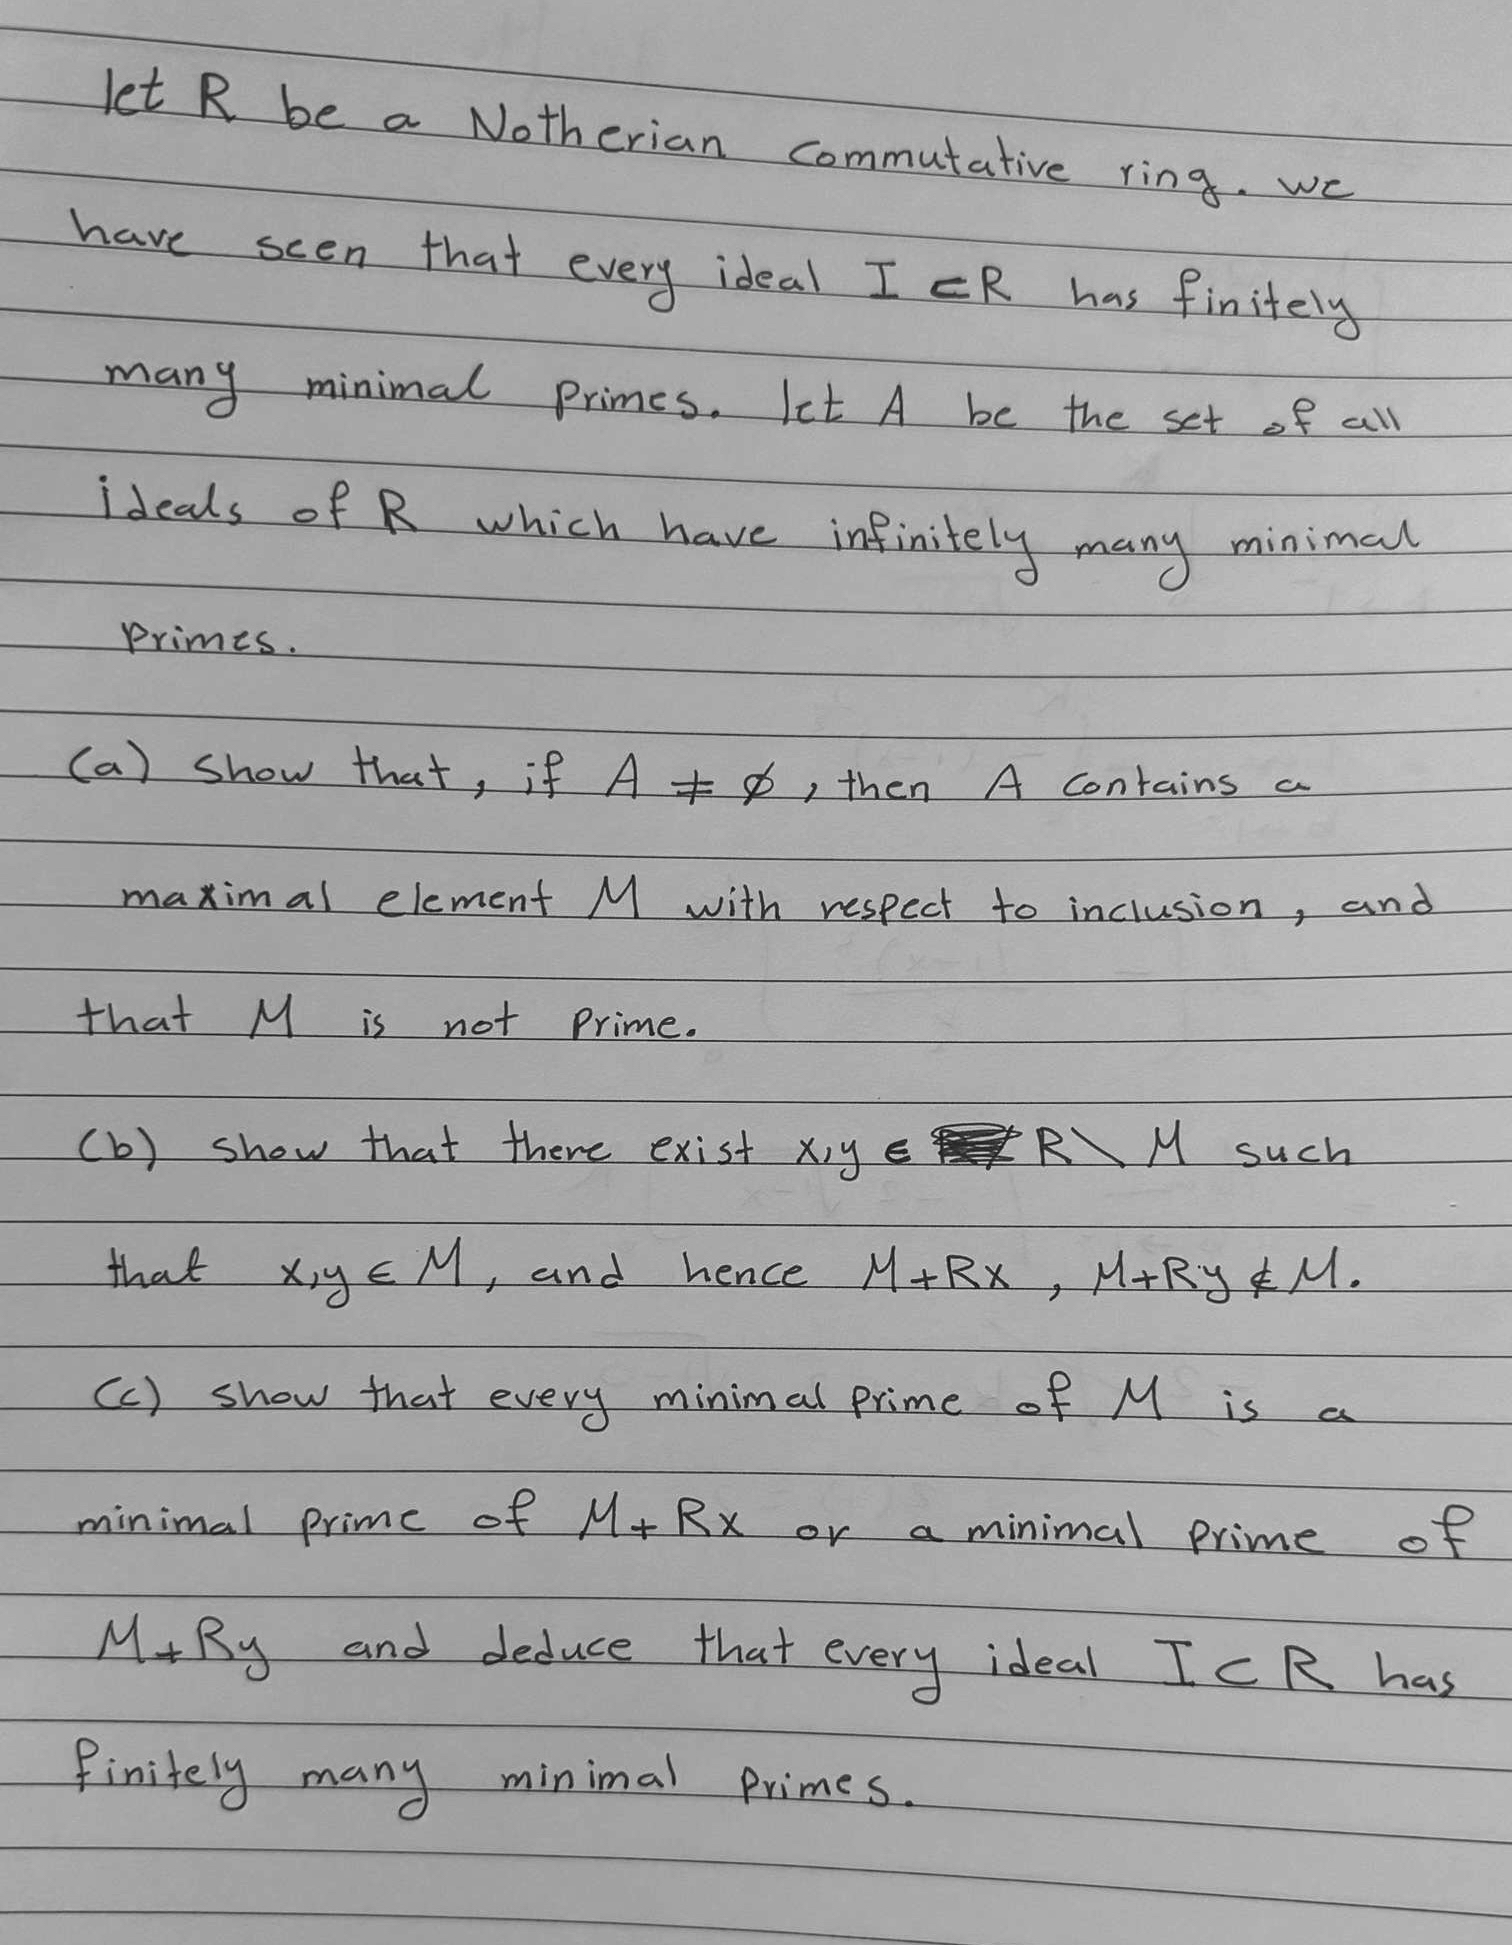 let R be a Notherian commutative ring. we
have seen that every ideal I ⊂ R has finitely
many minimal primes. let A be the set of all
ideals of R which have infinitely many minimal
primes.
(a) show that, if A ≠ ∅, then A contains a
maximal element M with respect to inclusion, and
that M is not prime.
(b) show that there exist x,y ∈ R \ M such
that x,y ∈ M, and hence M+Rx, M+Ry ∉ M.
(c) show that every minimal prime of M is a
minimal prime of M+Rx or a minimal prime of
M+Ry and deduce that every ideal I ⊂ R has
finitely many minimal primes.